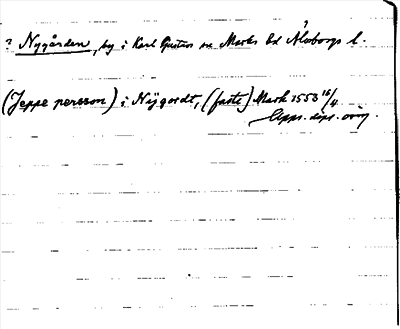 ? Nygården, by i Karl Gustav sn Marks hd Älvborgs l.
(Jeppe persson) i Nÿgordt, (faste) Mark 1553 16/4
Upps. dipl. orig.